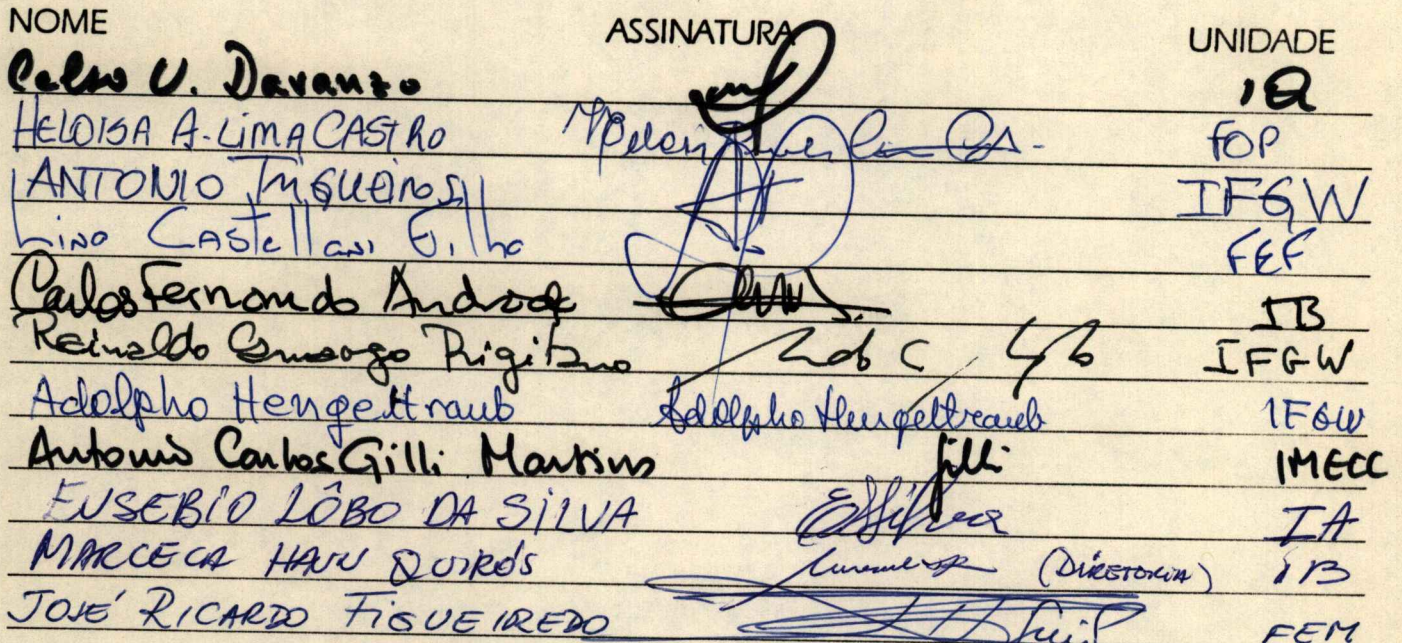 NOME ASSINATURA UNIDADE
Celso U. Davanzo IQ
HELOISA A. LIMA CASTRO FOP
ANTONIO TRIGUEIROS IFGW
Lino Castellani Filho FEF
Carlos Fernando Andrade IB
Reinaldo Camargo Rigitano IFGW
Adolpho Hengeltraub Adolpho Hengeltraub IFGW
Antonio Carlos Gilli Martins Gilli IMECC
EUSEBIO LÔBO DA SILVA ESilva IA
MARCECA HAUN QUIRÓS (DIRETORIA) IB
JOSÉ RICARDO FIGUEIREDO FEM